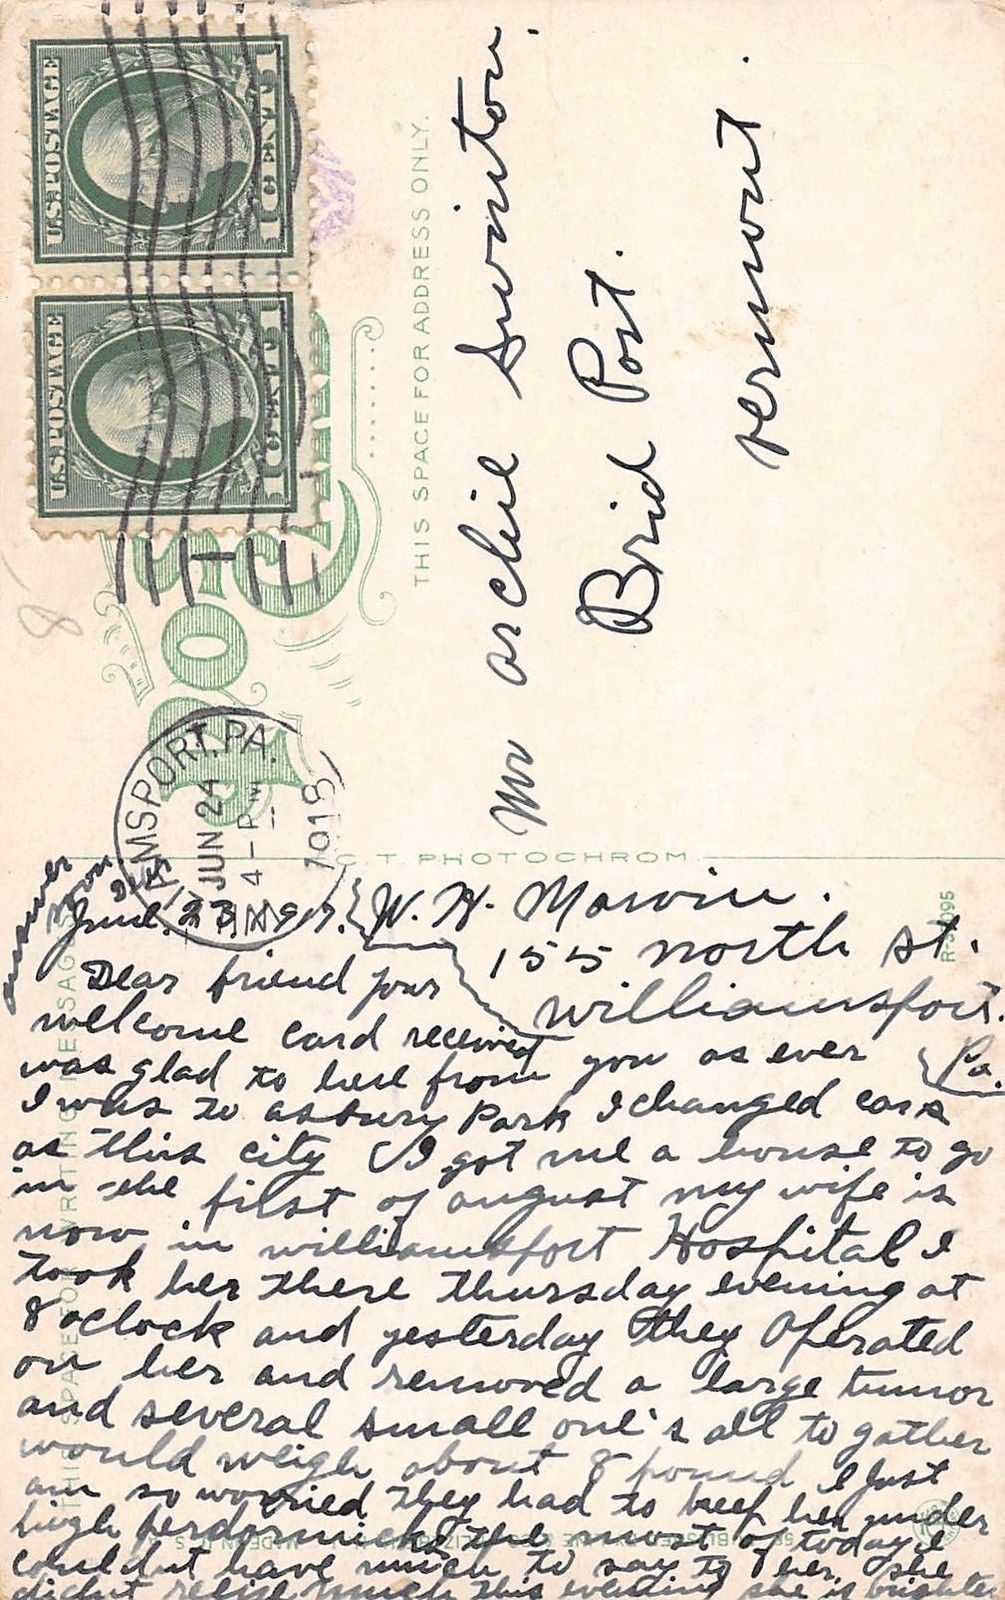 U.S. POSTAGE
1 CENT 1
U.S. POSTAGE
1 CENT 1
POST CARD
THIS SPACE FOR ADDRESS ONLY.
Mr archie Swinton.
Brid Port.
vermont.
MSPORT, PA.
JUN 24
4 - PM
1918
C.T. PHOTOCHROM
THIS SPACE FOR WRITING MESSAGES
answer
soon
June. 23
W. H. Marvin.
155 north st.
williamsport.
Pa.
Dear friend your
welcome card received
was glad to here from you as ever
I was to asbury Park I changed cars
as this city I got me a house to go
in the first of august my wife is
now in williamsport Hospital I
took her there thursday evening at
8 oclock and yesterday they Operated
on her and removed a large tumor
and several small one's all to gather
would weigh about 8 pound I Just
am so worried they had to keep her under
high the most of today I
couldnt have much to say to her, she
didnt much this evening she is brighter